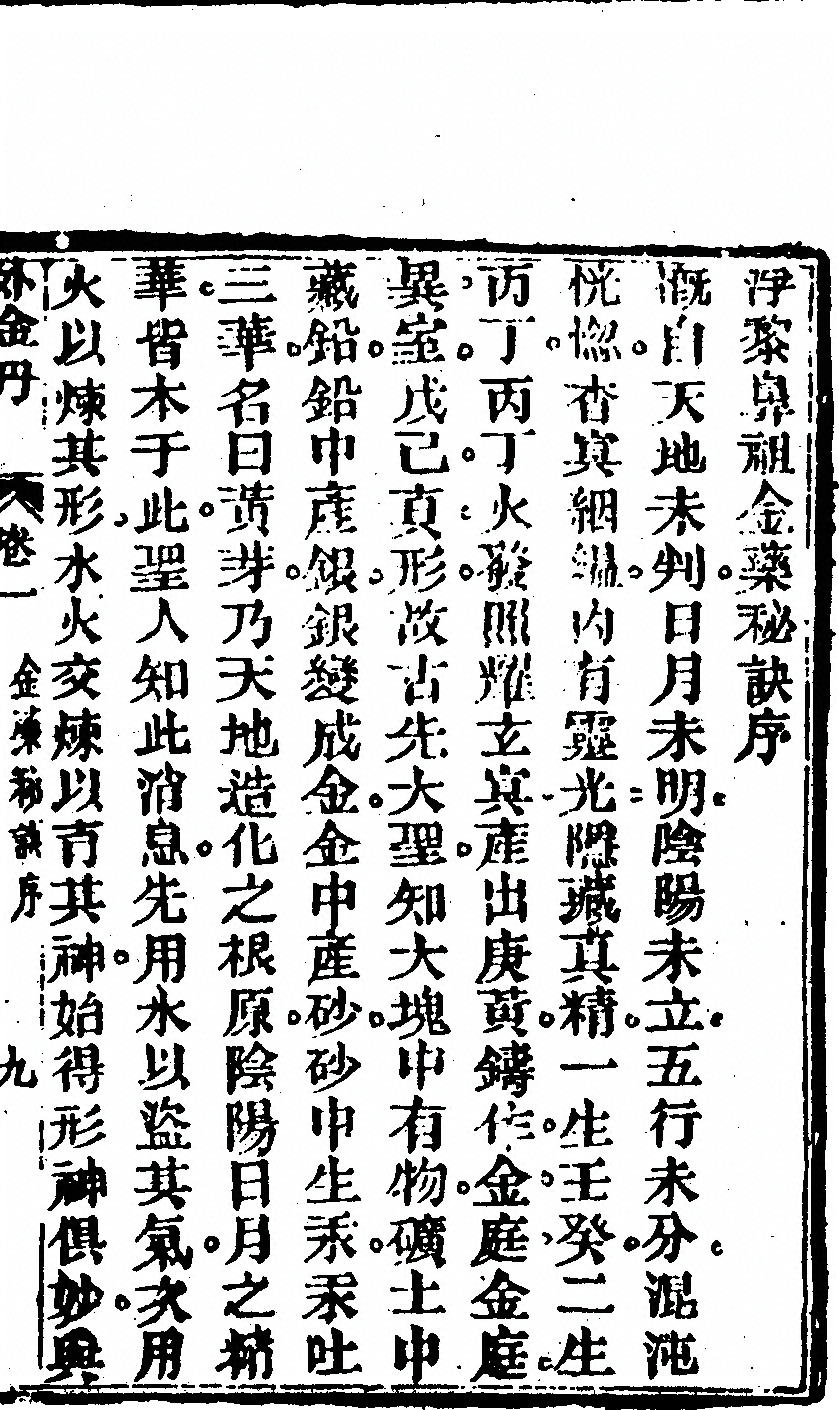 淨黎鼻祖金藥秘訣序
溉自天地未判。日月未明。陰陽未立。五行未分。混沌
恍惚。杳冥絪縕。內有靈光。隱藏真精。一生壬癸。二生
丙丁。丙丁火發。照耀玄冥。產出庚黃。鑄作金庭。金庭
異室。戊己真形。故古先大聖。知大塊中有物。礦土中
藏鉛。鉛中產銀。銀變成金。金中產砂。砂中生汞。汞吐
三華。名曰黃芽。乃天地造化之根原。陰陽日月之精
華。皆本于此。聖人知此消息。先用水以盜其氣。次用
火以煉其形。水火交煉。以育其神。始得形神俱妙。與
外金丹 卷一 金藥秘訣序 九